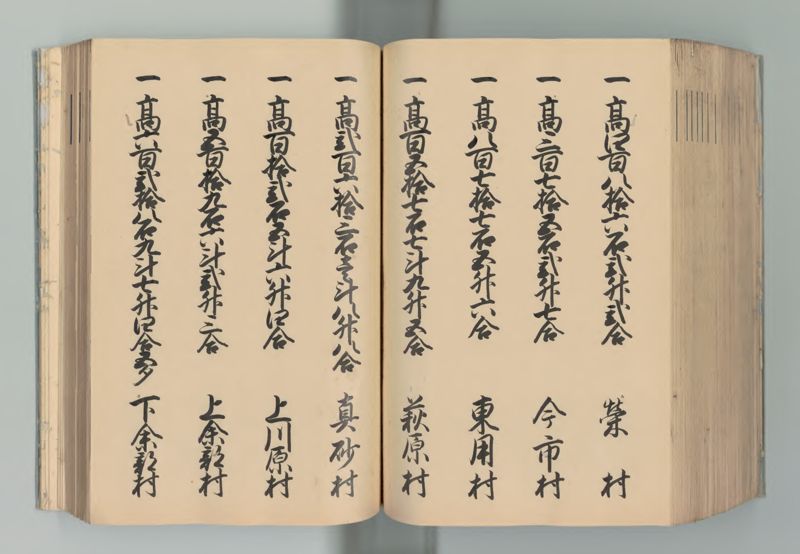 一 高四百八拾六石弐升弐合 榮村
一 高三百七拾五石弐升七合 今市村
一 高八百七拾七石五升六合 東用村
一 高百五拾七石七斗九升五合 萩原村
一 高弐百六拾三石壱斗八升八合 真砂村
一 高百拾弐石五斗六升四合 上川原村
一 高五百拾九石六斗弐升三合 上余部村
一 高六百弐拾八石九斗七升四合五夕 下余部村